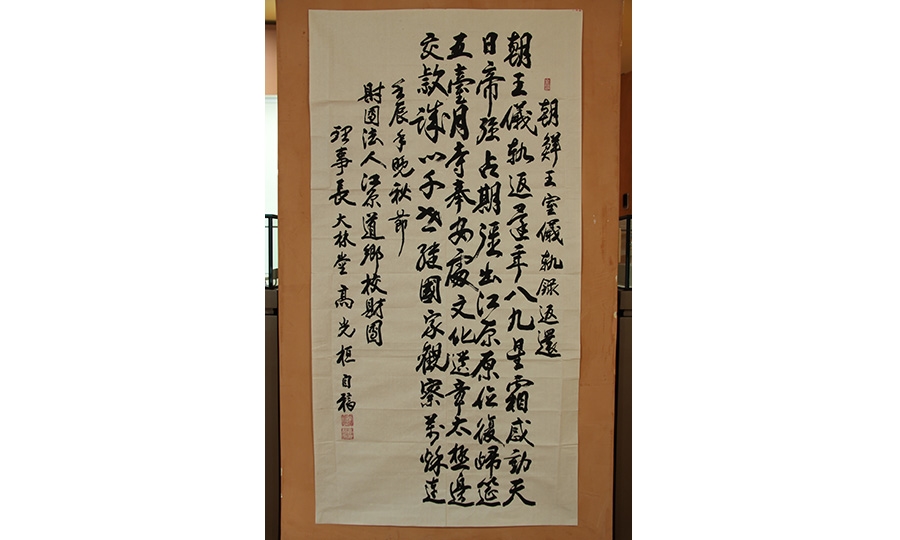 朝鮮王室儀軌錄返還
朝王儀軌返還年八九星霜感動天
日帝强占期出江原原位復歸筵
五臺月寺奉安處文化遺章太極邊
交款誠心千國家觀察萬達
壬辰年晩秋節
財團法人江原道鄕校財團
理事長大林堂高光自稿